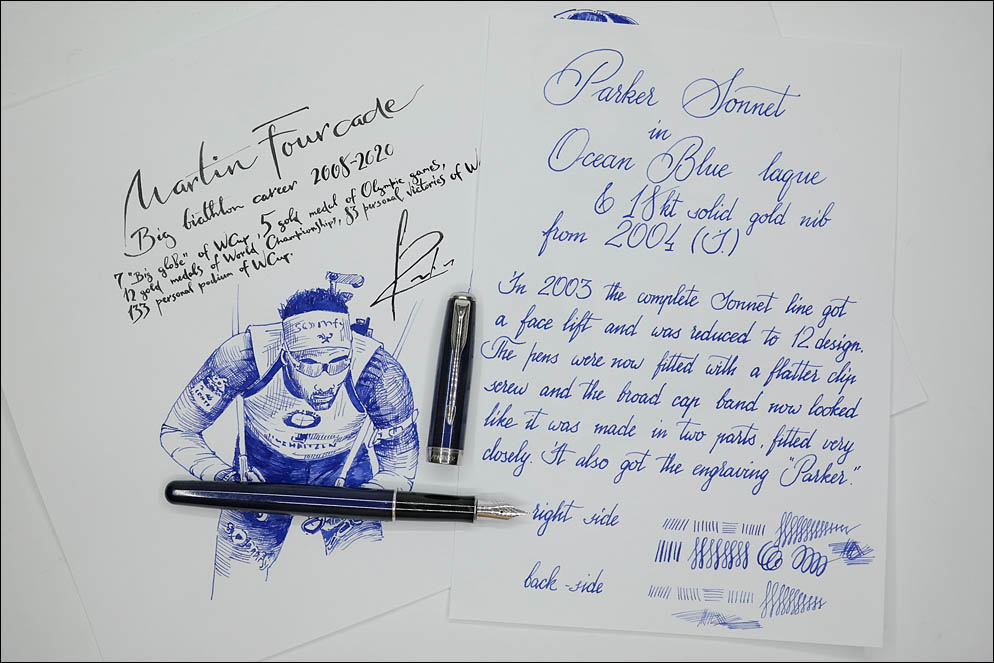 Martin Fourcade
Big biathlon career 2008-2020
7 "Big globe" of WCup, 5 gold medal of Olympic games,
12 gold medals of World Championship, 83 personal victories of W.
133 personal podium of WCup.
Parker Sonnet
in
Ocean Blue laque
& 18kt solid gold nib
from 2004 (I.)
In 2003 the complete Sonnet line got
a face lift and was reduced to 12 design.
The pens were now fitted with a flatter clip
screw and the broad cap band now looked
like it was made in two parts, fitted very
closely. It also got the engraving "Parker".
right side
back-side